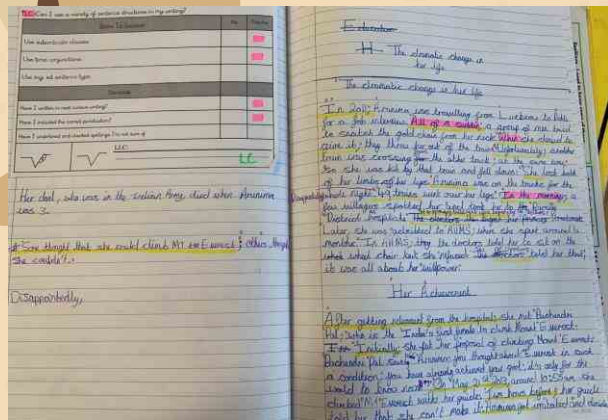 Can I use a variety of sentence structures in my writing?
Me
Teacher
Use subordinate clauses
Use time conjunctions
Use sentence types
Have I written in neat cursive writing?
Have I included the correct punctuation?
Have I underlined and checked spellings I'm not sure of
LC
LC
Her dad, who was in the Indian Army died when Arunima
was 3.
Some thought that she could climb MT Everest; others
she couldn't.
Disappointedly,
Education
H The dramatic change in
her life
The dramatic change in her life
In 2011, Arunima was travelling from Lucknow to Delhi
for a job interview. All of a sudden, a group of men tried
to snatch the gold chain from her neck. When she
it; they threw her out of the train. Unfortunately, another
train was crossing the other track, at the same time.
So she was hit by that train and fell down. She lost both
of her limbs and her legs. Arunima was on the tracks for the
whole night. 49 trains went over her legs. In the morning, a
few villagers spotted her and sent her to the
District hospital. The doctors
Later, she was admitted to AIIMS; where she spent around 4
months. In AIIMS, the doctors told her to sit on the
wheel chair but she refused. The doctors told her that;
it was all about her willpower.
Her Achievement
After getting released from the hospital, she met Bachendri
Pal, who is the India's first female to climb Mount Everest.
Instantly, she put her proposal of climbing Mount Everest.
Bachendri Pal said, "Arunima you thought about Everest in such
a condition, you have already achieved your goal; it's only for the
world to know now." On May 21st 2013, around 10:55am, she
climbed MT Everest with her guide. Few hours before, her guide
told her that she can't make it. Arunima got